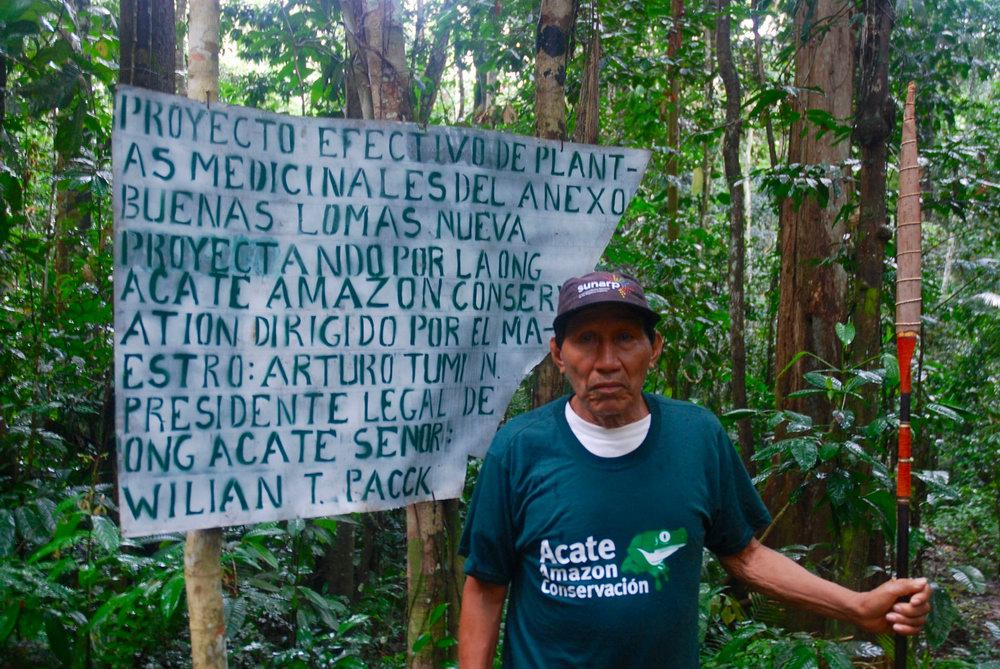 PROYECTO EFECTIVO DE PLANT-
AS MEDICINALES DEL ANEXO
BUENAS LOMAS NUEVA
PROYECTANDO POR LA ONG
ACATE AMAZON CONSER
ATION DIRIGIDO POR EL MA-
ESTRO: ARTURO TUMI N.
PRESIDENTE LEGAL DE
ONG ACATE SEÑOR:
WILIAN T. PACCK
sunarp
Acate
Amazon
Conservación